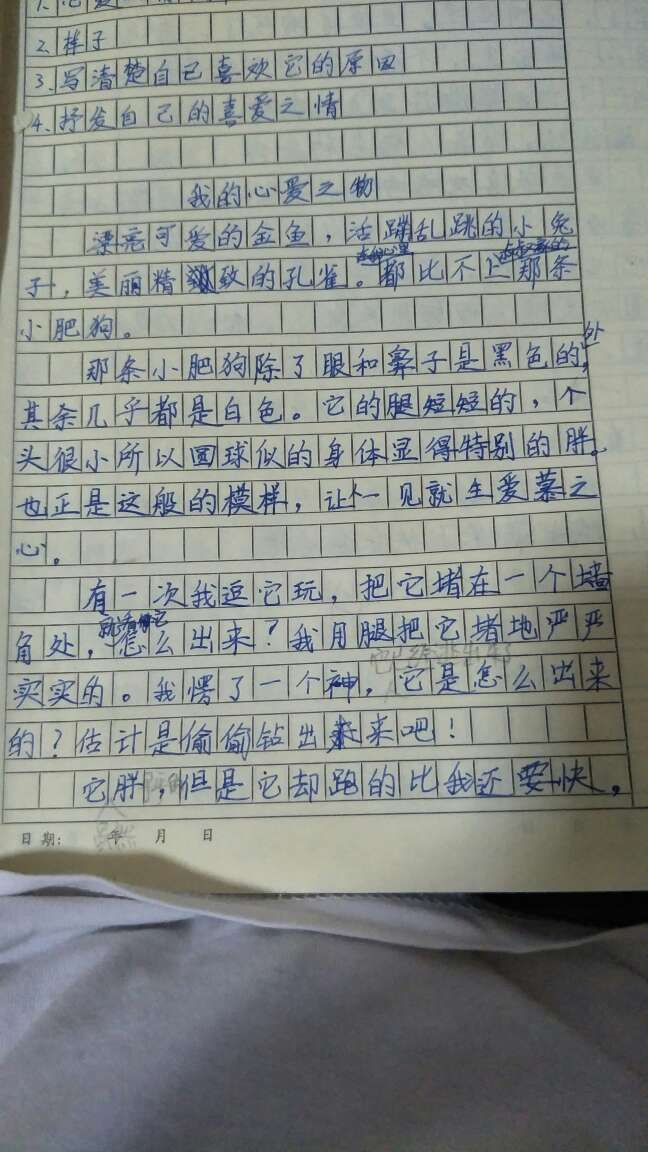 1.
2.样子
3.写清楚自己喜欢它的原因
4.抒发自己的喜爱之情
我的心爱之物
漂亮可爱的金鱼，活蹦乱跳的小兔
子，美丽精致的孔雀。在我心里都比不上叔叔家的那条
小肥狗。
那条小肥狗除了眼和鼻子是黑色的，外
其条几乎都是白色。它的腿短短的，个
头很小所以圆球似的身体显得特别的胖。
也正是这般的模样，让人一见就生爱慕之
心。
有一次我逗它玩，把它堵在一个墙
角处，就看你它怎么出来？我用腿把它堵地严严
实实的。我愣了一个神，它是怎么出来
的？估计是偷偷钻出来吧！
它胖，但是它却跑的比我还要快，
虽然
日期： 年 月 日